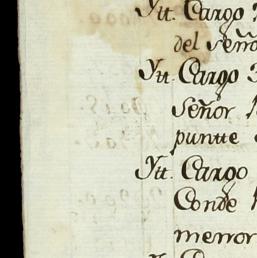 Ytt. Cargo
del Seño
Ytt. Cargo 3
Señor
puntte
Ytt. Cargo
Conde
menor